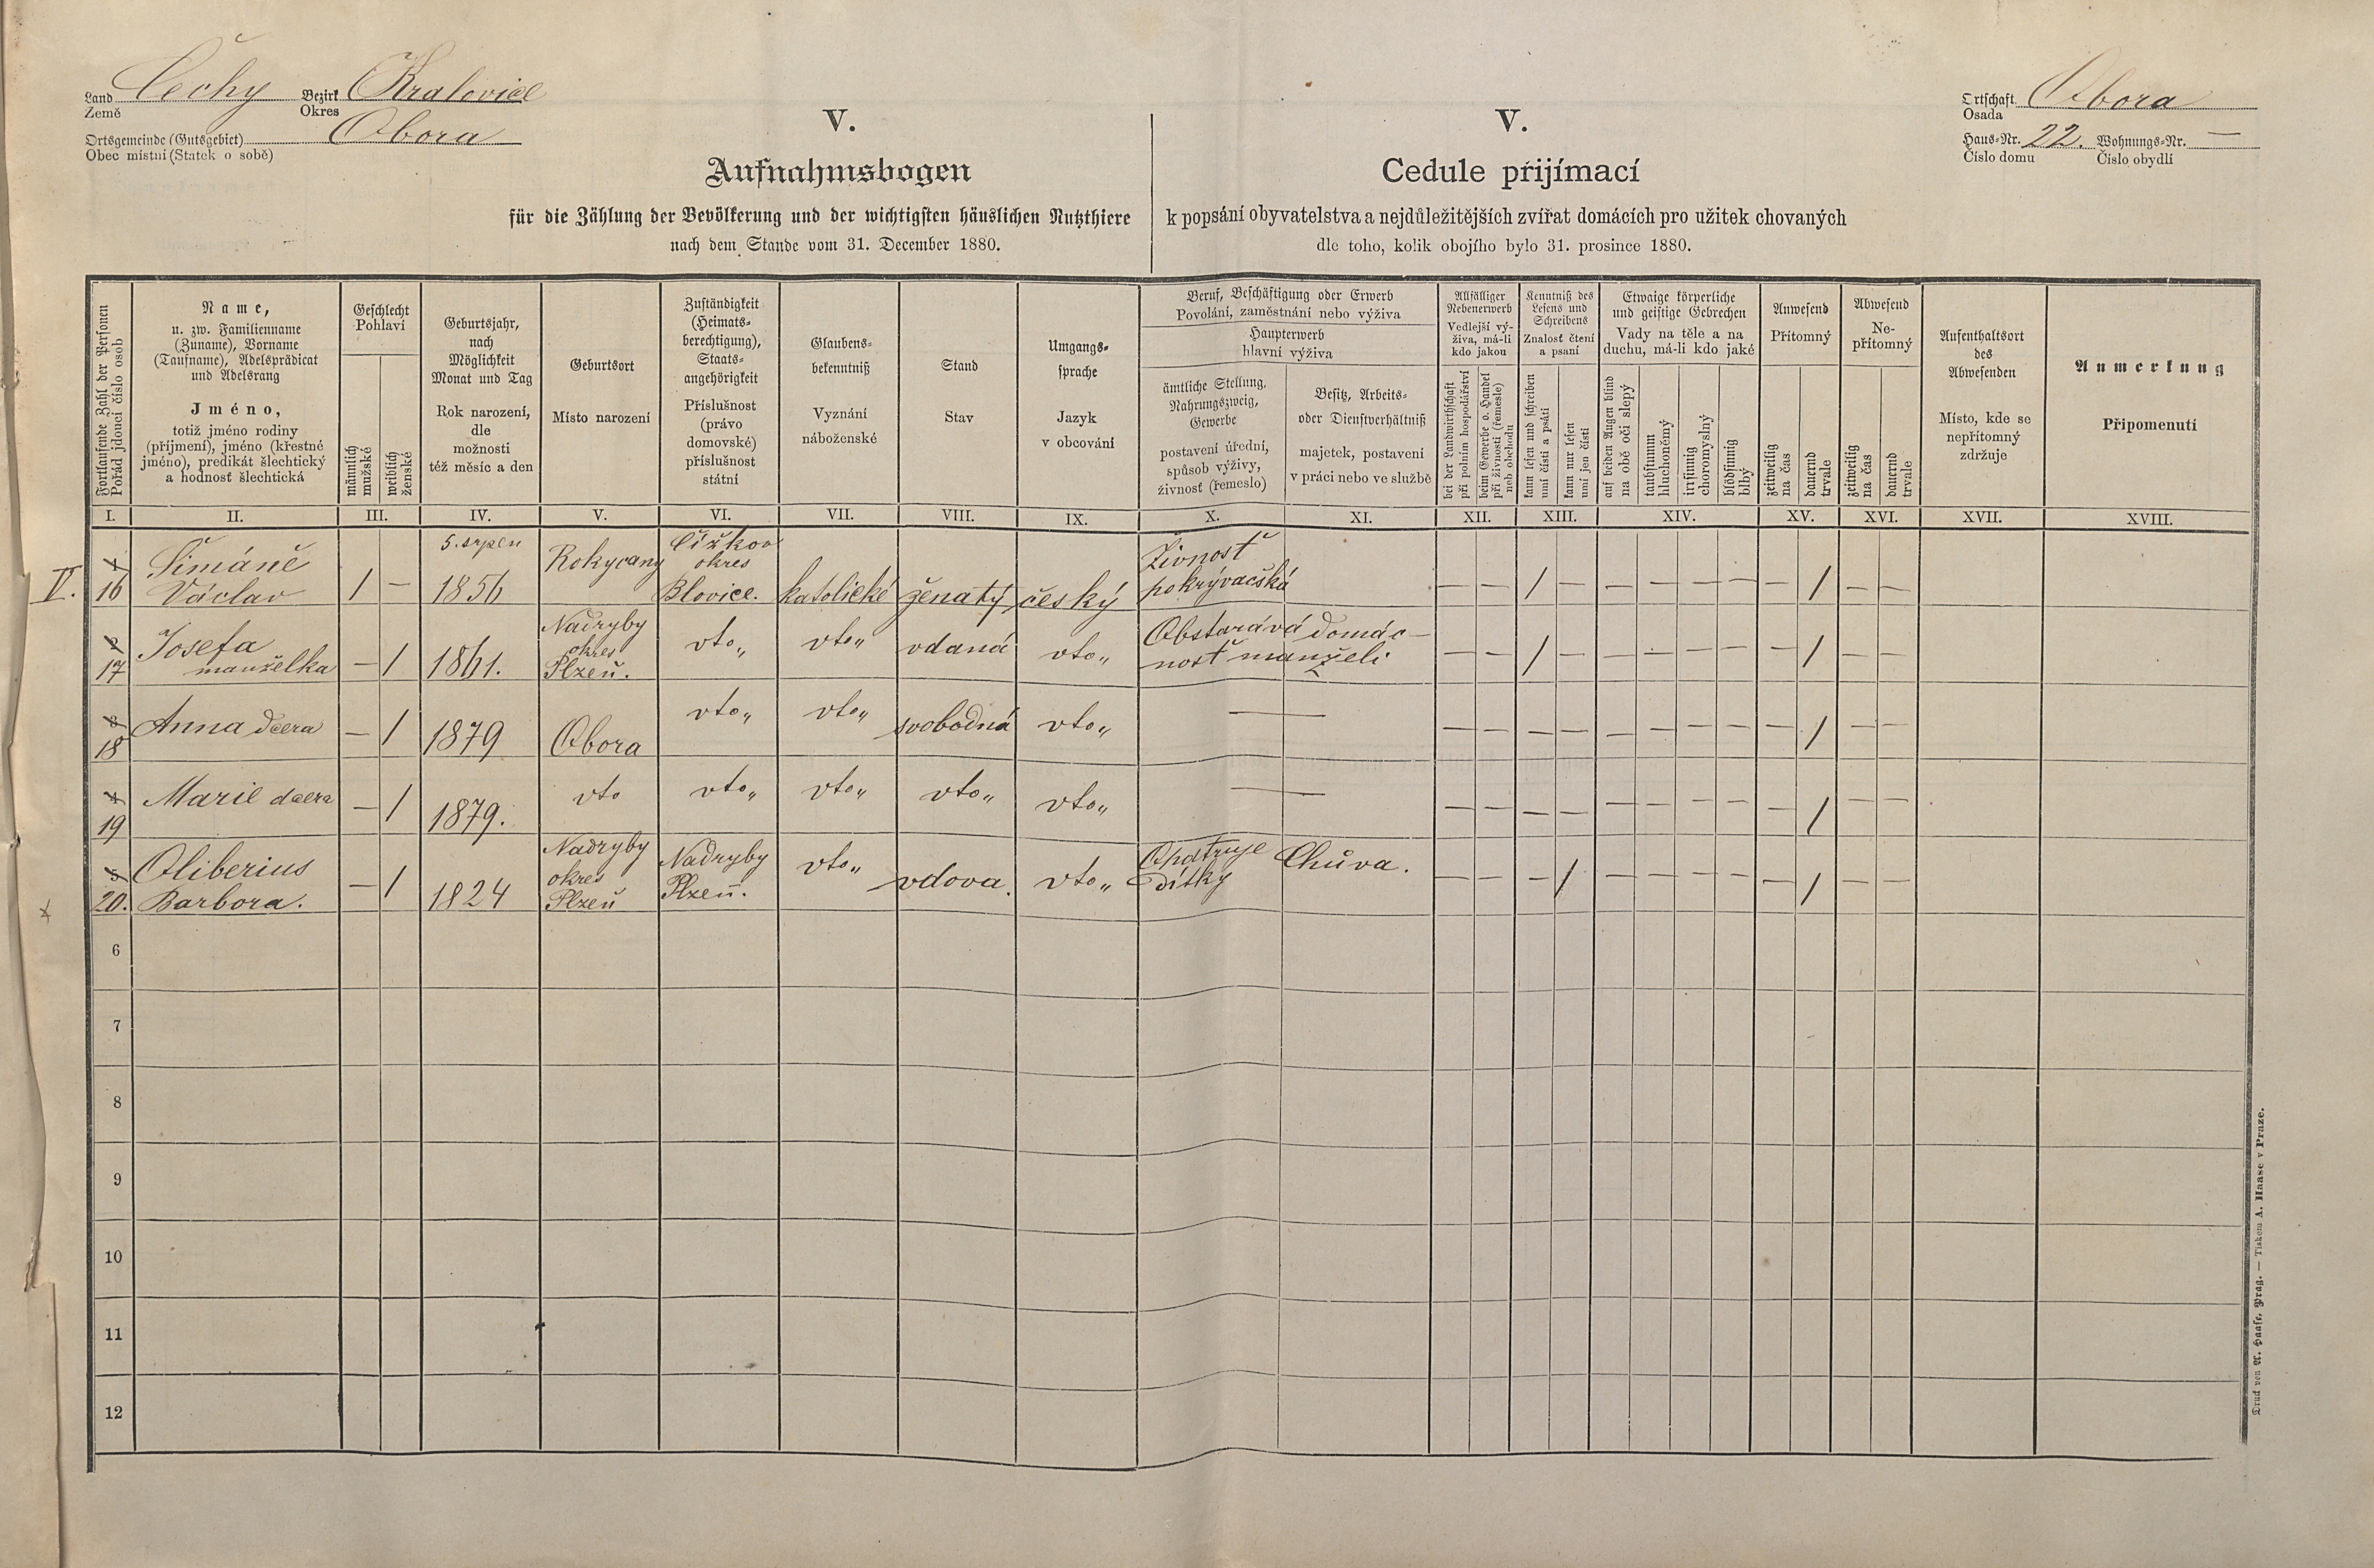 Land Čechy Bezirk Kralovice
Země Okres
Ortsgemeinde (Gutsgebiet) Obora
Obec místní (Statek o sobě)
Ortschaft Obora
Osada
Haus-Nr. 22. Wohnungs-Nr. —
Číslo domu Číslo obydlí
V.
Aufnahmsbogen
für die Zählung der Bevölkerung und der wichtigsten häuslichen Nutzthiere
nach dem Stande vom 31. December 1880.
V.
Cedule přijímací
k popsání obyvatelstva a nejdůležitějších zvířat domácích pro užitek chovaných
dle toho, kolik obojího bylo 31. prosince 1880.
Fortlaufende Zahl der Personen
Pořád jdoucí číslo osob
Name,
u. zw. Familienname
(Zuname), Vorname
(Taufname), Adelsprädicat
und Adelsrang
Jméno,
totiž jméno rodiny
(příjmení), jméno (křestné
jméno), predikát šlechtický
a hodnosť šlechtická
Geschlecht
Pohlaví
männlich
mužské
weiblich
ženské
Geburtsjahr,
nach
Möglichkeit
Monat und Tag
Rok narození,
dle
možnosti
též měsíc a den
Geburtsort
Místo narození
Zuständigkeit
(Heimats-
berechtigung),
Staats-
angehörigkeit
Příslušnost
(právo
domovské)
příslušnost
státní
Glaubens-
bekenntniß
Vyznání
náboženské
Stand
Stav
Umgangs-
sprache
Jazyk
v obcování
Beruf, Beschäftigung oder Erwerb
Povolání, zaměstnání nebo výživa
Haupterwerb
hlavní výživa
ämtliche Stellung,
Nahrungszweig,
Gewerbe
postavení úřední,
spůsob výživy,
živnosť (řemeslo)
Besitz, Arbeits-
oder Dienstverhältniß
majetek, postavení
v práci nebo ve službě
Allfälliger
Nebenerwerb
Vedlejší vý-
živa, má-li
kdo jakou
bei der Landwirthschaft
při polním hospodářství
beim Gewerbe o. Handel
při živnosti (řemesle)
neb obchodu
Kenntniß des
Lesens und
Schreibens
Znalosť čtení
a psaní
kann lesen und schreiben
umí čísti a psáti
kann nur lesen
umí jen čísti
Etwaige körperliche
und geistige Gebrechen
Vady na těle a na
duchu, má-li kdo jaké
auf beiden Augen blind
na obě oči slepý
taubstumm
hluchoněmý
irrsinnig
choromyslný
blödsinnig
blbý
Anwesend
Přítomný
zeitweilig
na čas
dauernd
trvale
Abwesend
Ne-
přítomný
zeitweilig
na čas
dauernd
trvale
Aufenthaltsort
des
Abwesenden
Místo, kde se
nepřítomný
zdržuje
Anmerkung
Připomenutí
I. II. III. IV. V. VI. VII. VIII. IX. X. XI. XII. XIII. XIV. XV. XVI. XVII. XVIII.
V.
1
16
Šimáně
Václav
1 —
5. srpen
1856
Rokycany
Čížkov
okres
Blovice.
katolické
ženatý
český
Živnosť
pokrývačská
— — / — — — — — — / — —
2
17
Josefa
manželka
— 1
1861.
Nadryby
okres
Plzeň.
vto„
vto„
vdaná
vto„
Obstarává domác-
nosť manželi
— — / — — — — — — / — —
3
18
Anna dcera
— 1
1879
Obora
vto„
vto„
svobodná
vto„
——
— — — — — — — — — / — —
4
19
Marie dcera
— 1
1879.
vto
vto„
vto„
vto„
vto„
——
— — — — — — — — — / — —
5
20.
Oliberius
Barbora.
— 1
1824
Nadryby
okres
Plzeň
Nadryby
Plzeň.
vto„
vdova.
vto„
Opatruje
dítky
Chůva.
— — — / — — — — — / — —
6
7
8
9
10
11
12
Druck von A. Haase, Prag. — Tiskem A. Haase v Praze.